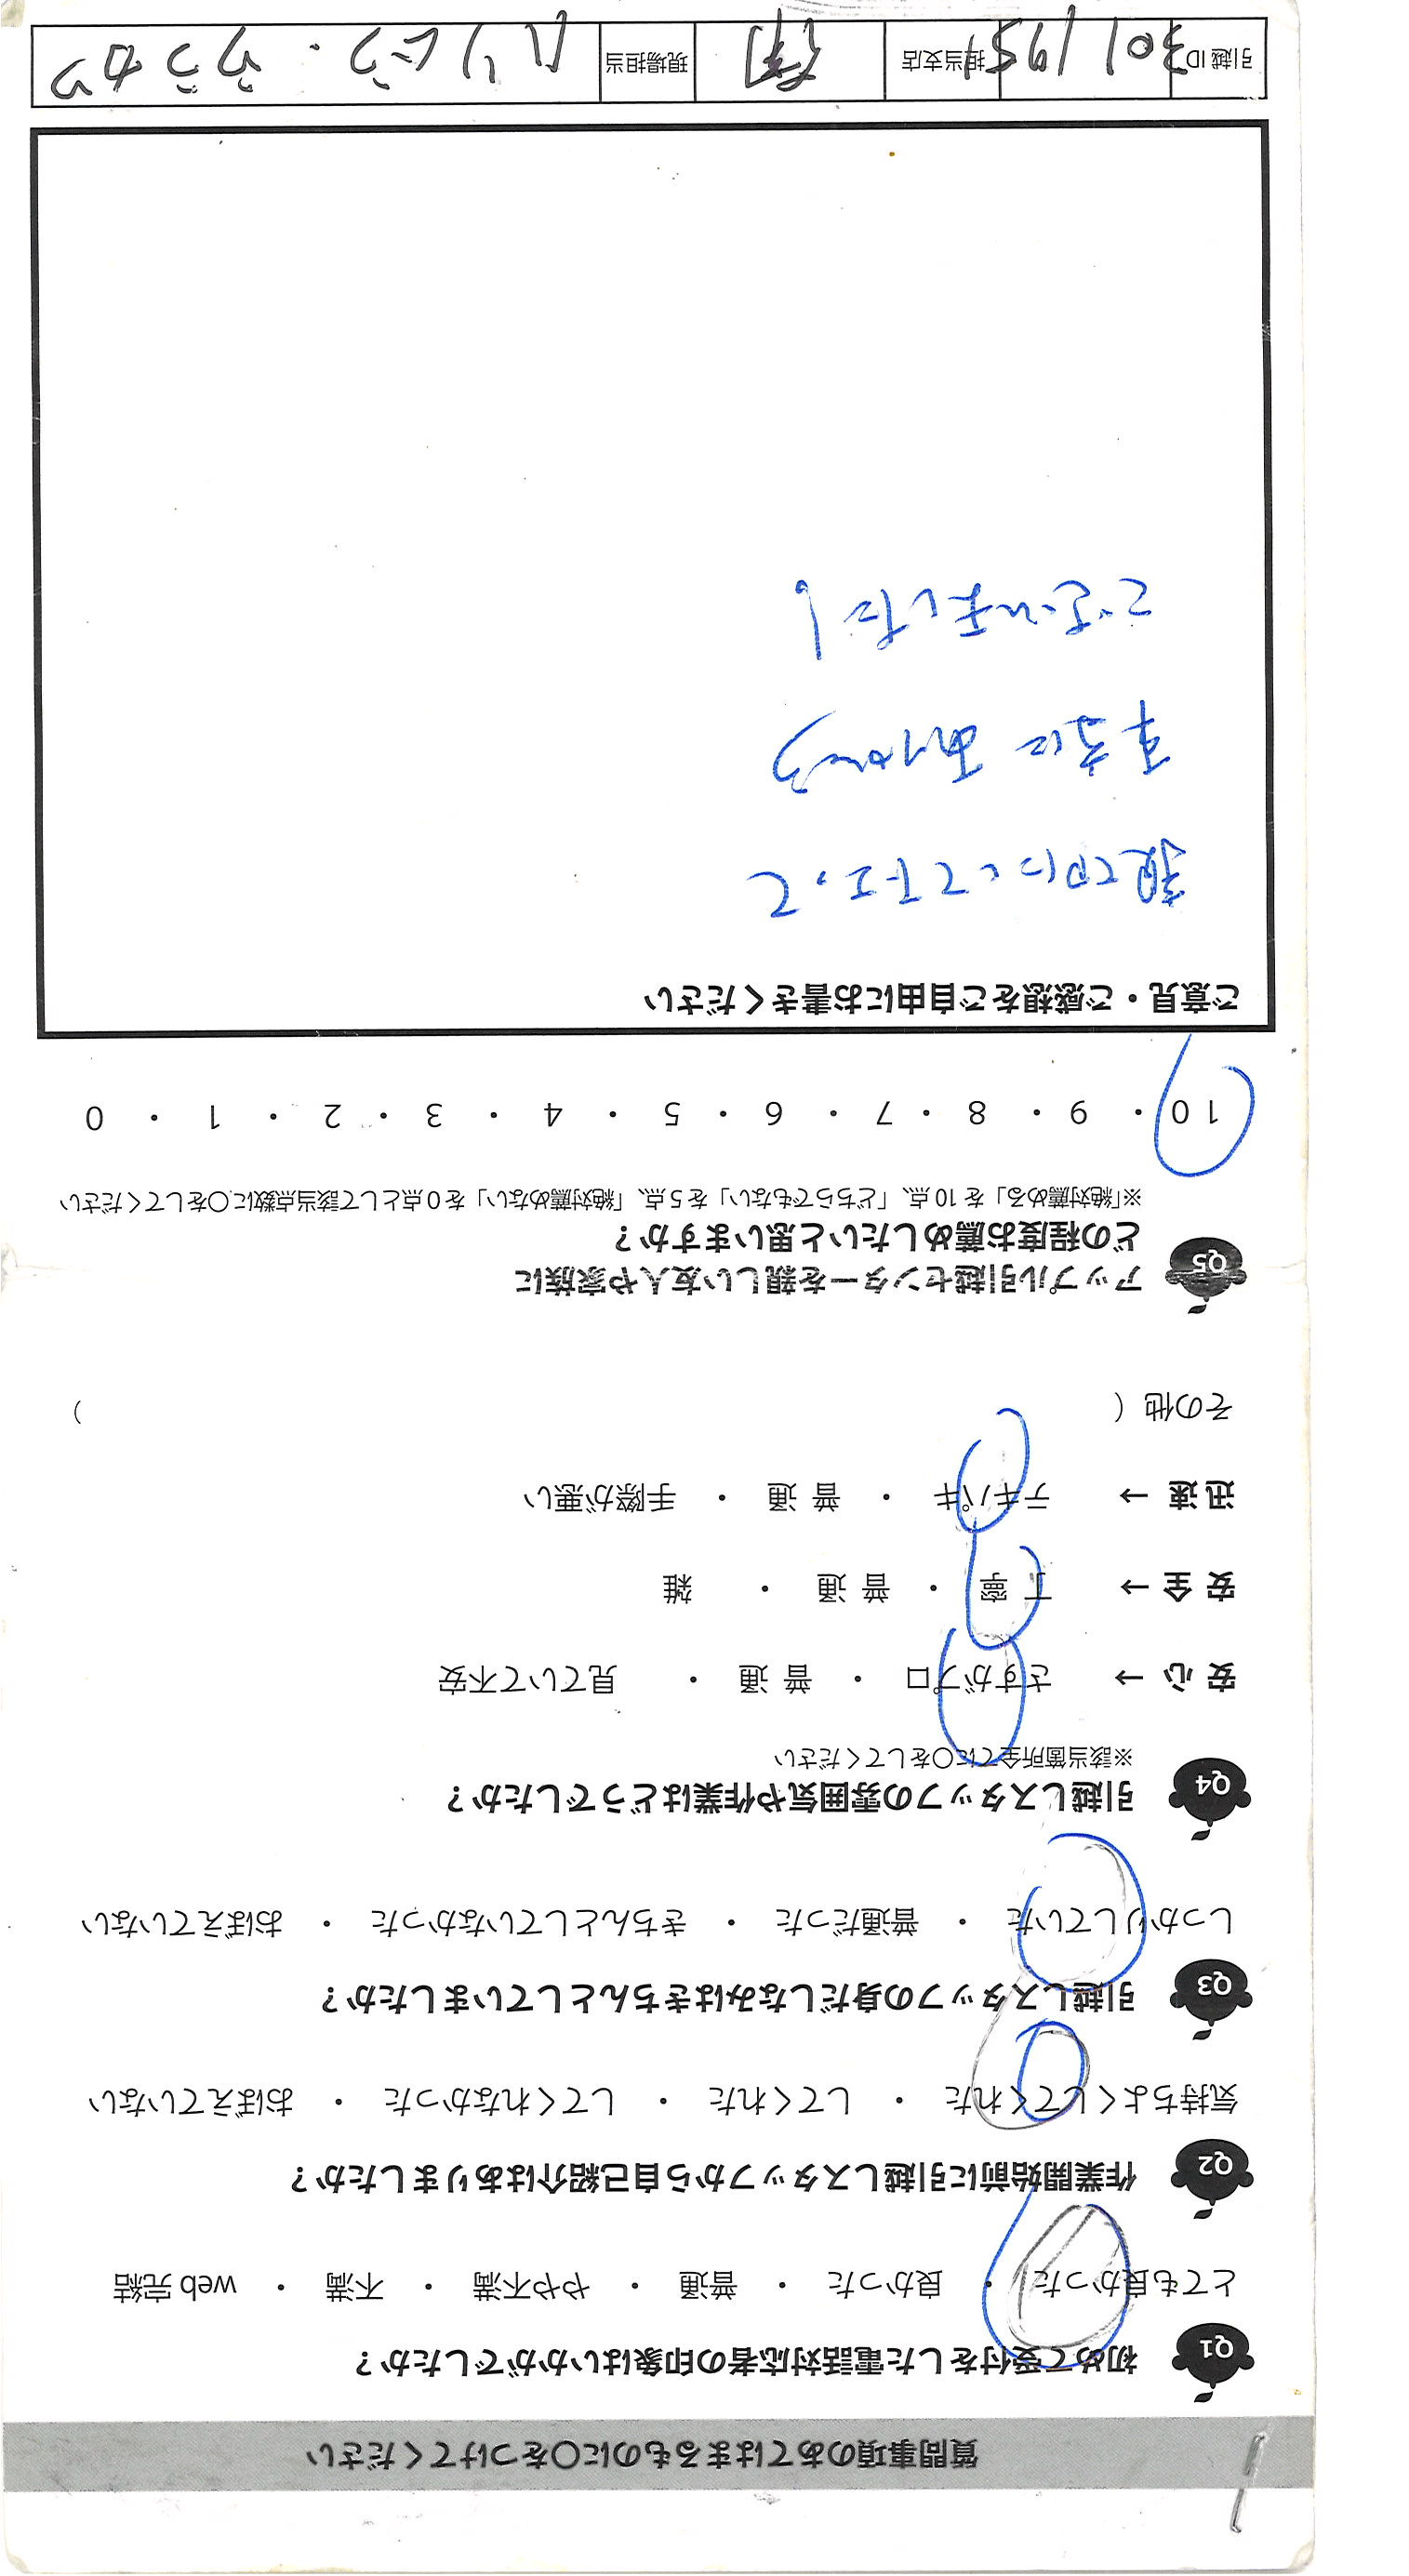 質問事項のあてはまるものに○をつけてください
Q1 初めて受付をした電話対応者の印象はいかがでしたか？
とても良かった ・ 良かった ・ 普通 ・ やや不満 ・ 不満 ・ web 完結
Q2 作業開始前に引越しスタッフから自己紹介はありましたか？
気持ちよくしてくれた ・ してくれた ・ してくれなかった ・ おぼえていない
Q3 引越しスタッフの身だしなみはきちんとしていましたか？
しっかりしていた ・ 普通だった ・ きちんとしていなかった ・ おぼえていない
Q4 引越しスタッフの雰囲気や作業はどうでしたか？
※該当箇所全てに○をしてください
安 心 → さすがプロ ・ 普 通 ・ 見ていて不安
安 全 → 丁 寧 ・ 普 通 ・ 雑
迅 速 → テキパキ ・ 普 通 ・ 手際が悪い
その他（ ）
Q5 アップル引越センターを親しい友人や家族に
どの程度お薦めしたいと思いますか？
※「絶対薦める」を 10 点、「どちらでもない」を 5 点、「絶対薦めない」を 0 点として該当点数に○をしてください
10 ・ 9 ・ 8 ・ 7 ・ 6 ・ 5 ・ 4 ・ 3 ・ 2 ・ 1 ・ 0
ご意見・ご感想をご自由にお書きください
親切にして下さって
本当に ありがとう
ございました！
引越 ID 301195 担当支店 現場担当